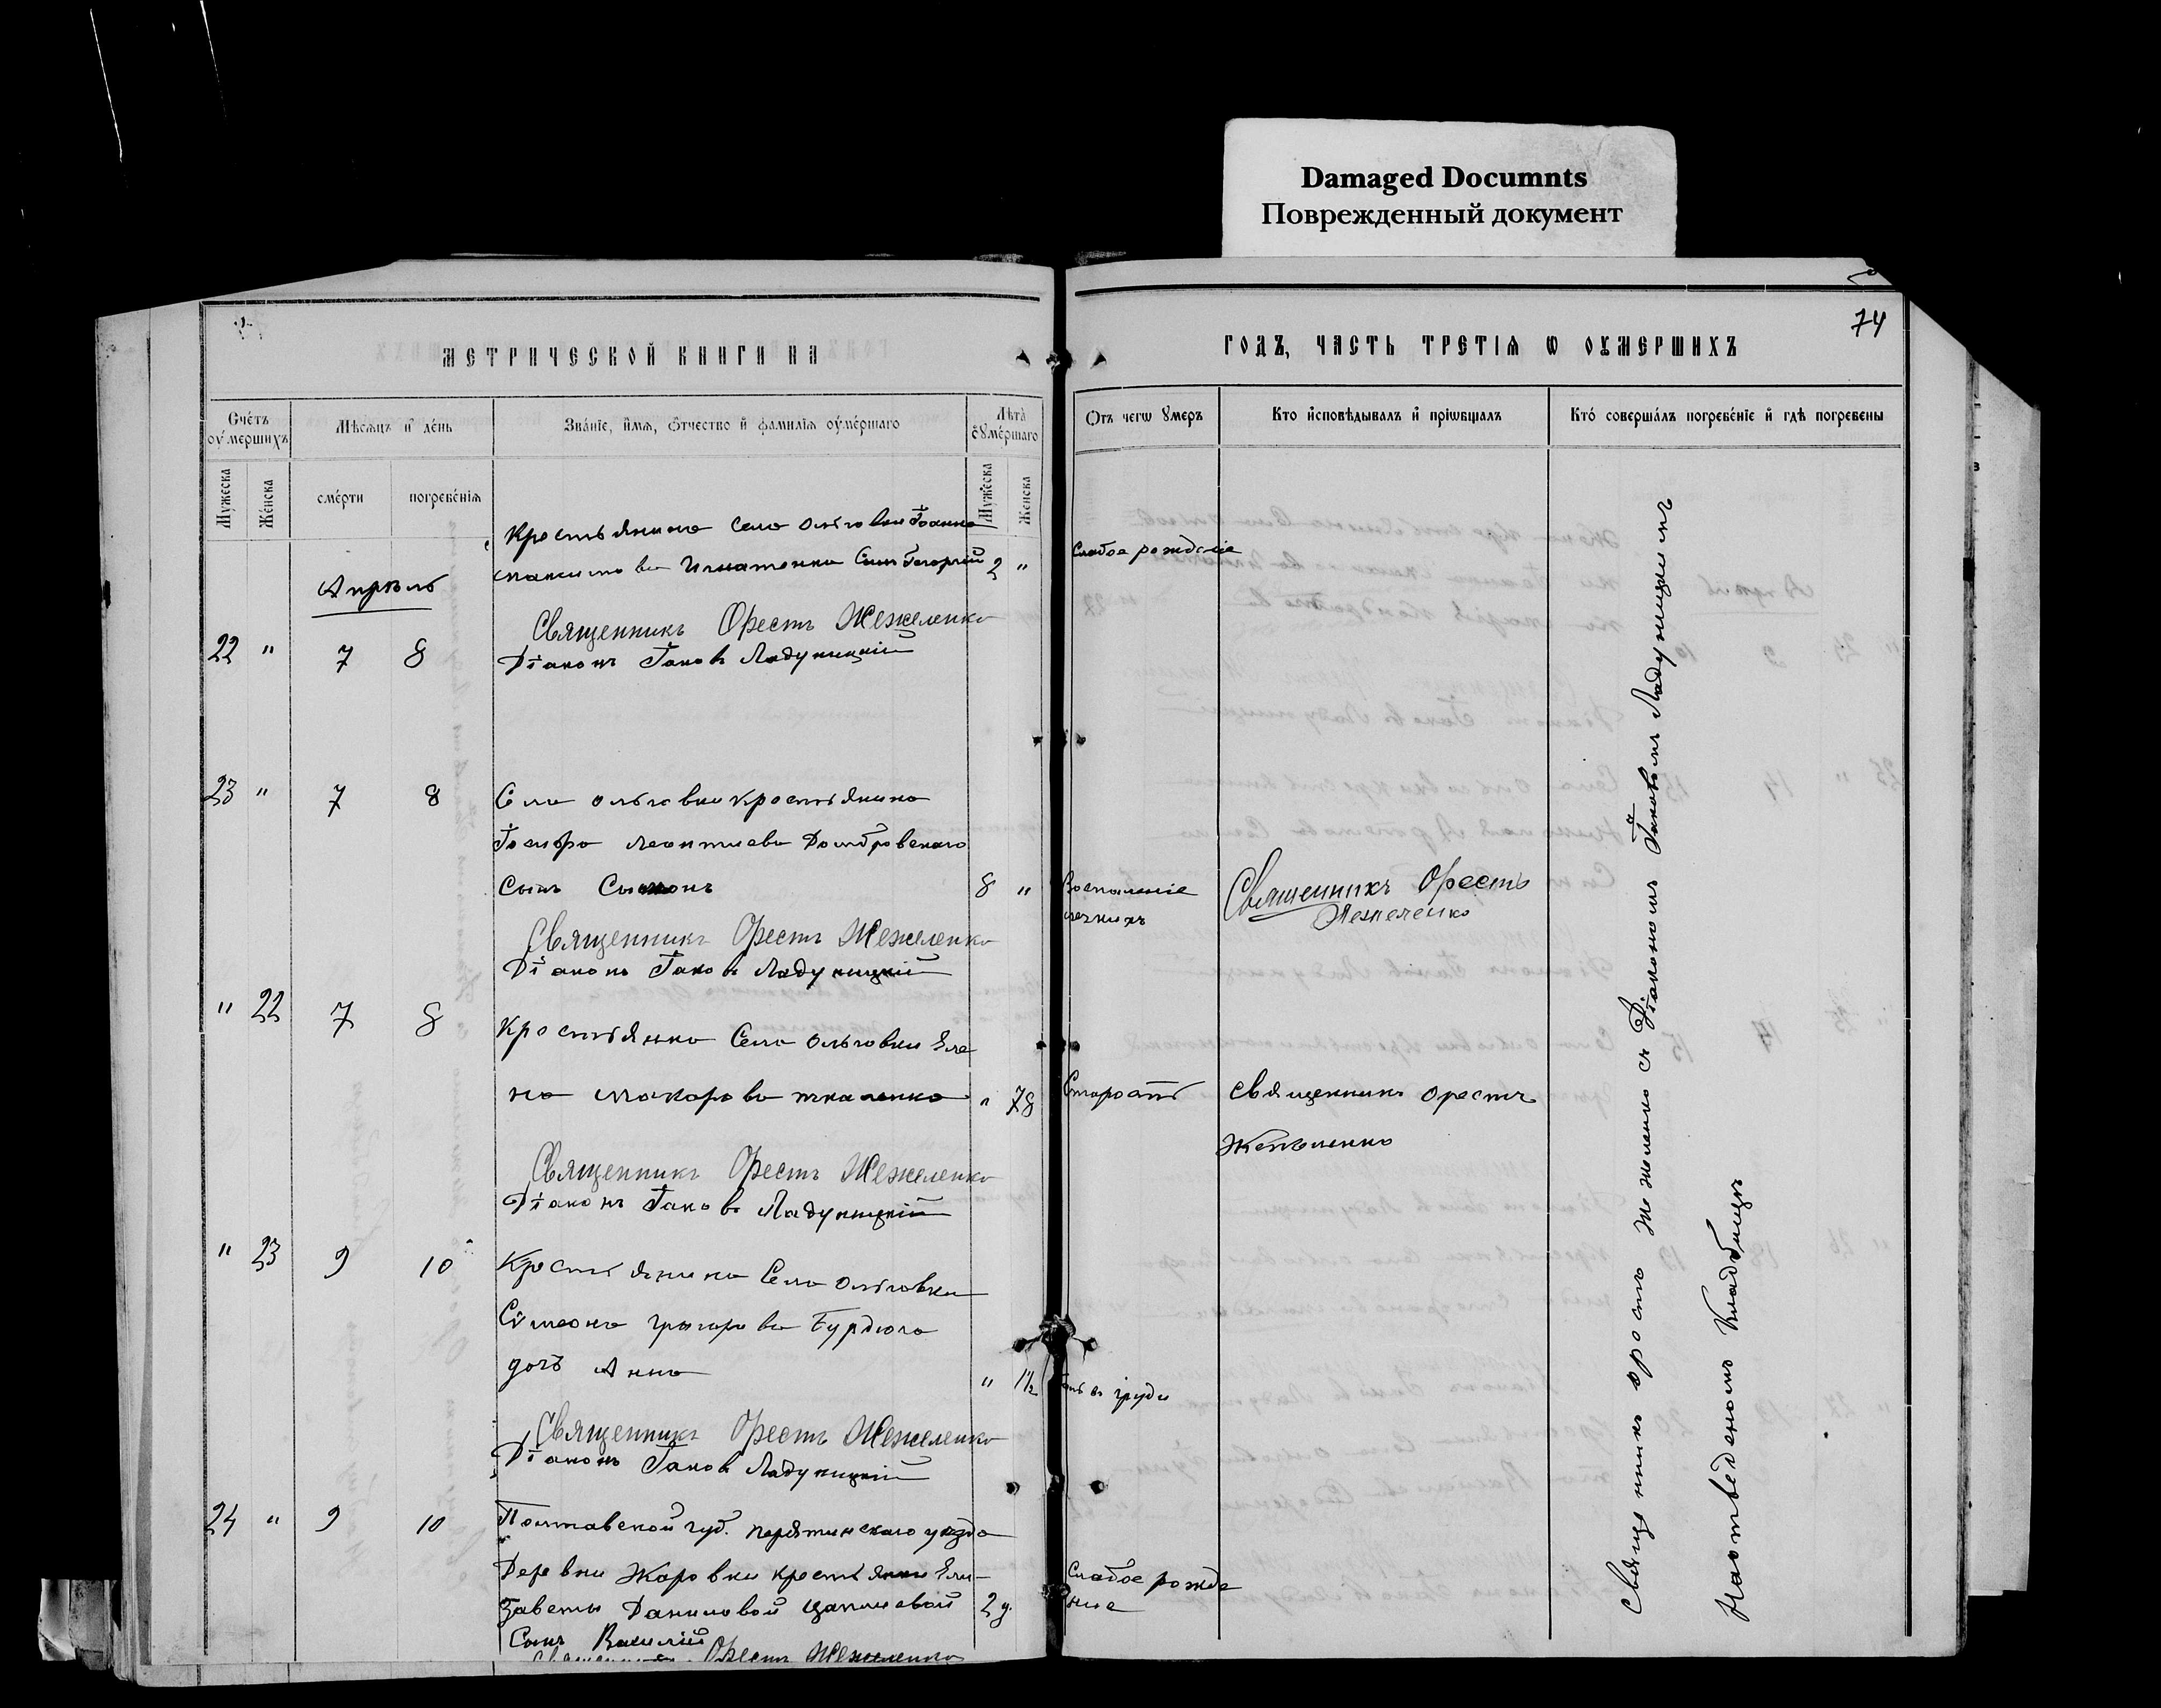 Damaged Documnts
Поврежденный документ
74
МЕТРИЧЕСКОЙ КНИГИ НА
ГОДЪ, ЧАСТЬ ТРЕТІЯ Ѡ ОУМЕРШИХЪ
Счетъ оумершихъ
Мѣсяцъ и день
Званіе, имя, отчество и фамилія оумершаго
Лѣта оумершаго
Отъ чегѡ умеръ
Кто исповѣдывалъ и пріѡбщалъ
Кто совершалъ погребеніе и гдѣ погребены
Мужеска
Женска
смерти
погребенія
Мужеска
Женска
Апрѣль
Крестьянина села Ольговки Іоанна
Максимова Игнатенка Сынъ Георгій 2 " Слабое рожденіе
Священникъ Орестъ Жежеленко
22 " 7 8 Діаконъ Іаковъ Ладуницкій
23 " 7 8 Села Ольговки крестьянина
Іосифа Леонтиева Домбровскаго
Сынъ 8 " Воспаленіе Священникъ Орестъ
легкихъ Жежеленко
Священникъ Орестъ Жежеленко
Діаконъ Іаковъ Ладуницкій
" 22 7 8 Крестьянка Села Ольговки Еле
на Макарова Ткаленко " 78 Старость Священникъ Орестъ
Жежеленко
Священникъ Орестъ Жежеленко
Діаконъ Іаковъ Ладуницкій
" 23 9 10 Крестьянина Села Ольговки
Симеона Григорова Бурдюга
дочь Анна " 1½ груди
Священникъ Орестъ Жежеленко
Діаконъ Іаковъ Ладуницкій
24 " 9 10 Полтавской губ. Пирятинскаго уезда
Деревни Жаровки крестьянки Ели-
заветы Даниловой Цаплиевой 2 д. Слабое рожде
ние
Сынъ Василій
Священникъ Орестъ Жежеленко
Священникъ Орестъ Жежеленко съ Діакономъ Іаковомъ Ладуницкимъ
На отведеномъ Кладбищѣ